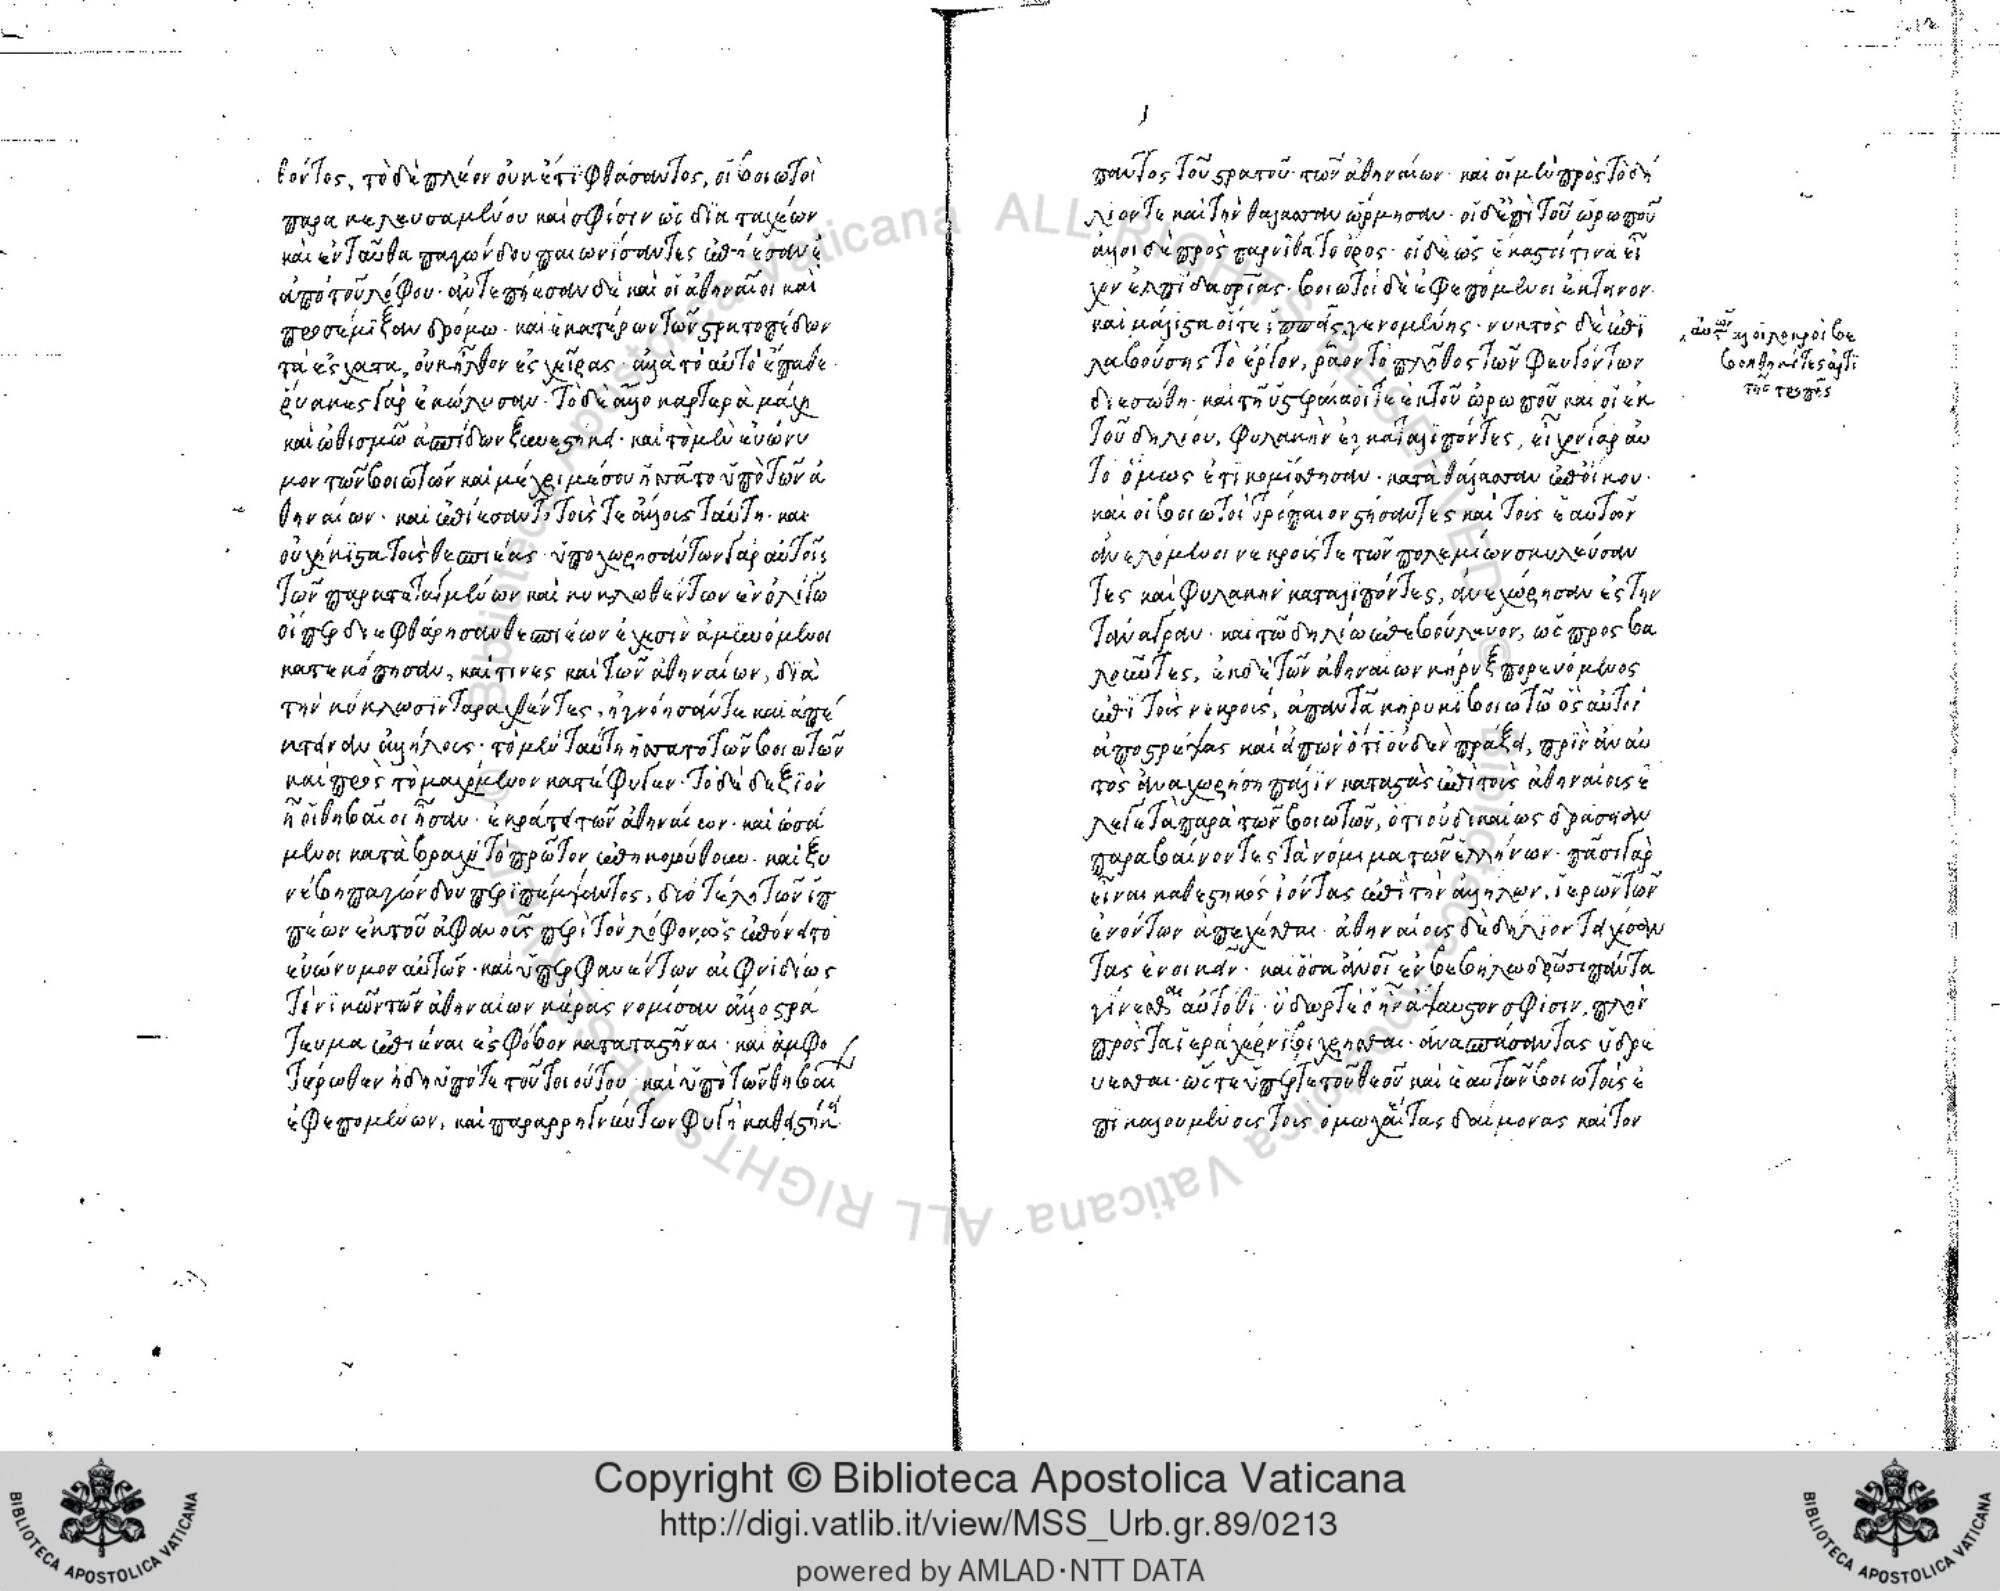 θόντος, τὸ δὲ πλέον οὐκέτι φθάσαντος, οἱ βοιωτοὶ
παρακελευσαμένου καὶ σφίσιν ὡς διαταχέων
καὶ ἐνταῦθα παγώνδου παιωνίσαντες ἐπήεσαν
ἀπὸ τοῦ λόφου· ἀντεπήεσαν δὲ καὶ οἱ ἀθηναῖοι καὶ
προσέμιξαν δρόμω· καὶ ἑκατέρων τῶν στρατοπέδων
τὰ ἔσχατα, οὐκ ἦλθον ἐς χεῖρας· ἀλλὰ τὸ αὐτὸ ἔπαθε·
ῥύακες γὰρ ἐκώλυσαν· τὸ δὲ ἄλλο καρτερᾶ μάχη
καὶ ὠθισμῶ ἀσπίδων ξυνεστήκει· καὶ τὸ μὲν εὐώνυ
μον τῶν βοιωτῶν καὶ μέχρι μέσου ἡσσᾶτο ὑπὸ τῶν ἀ
θηναίων· καὶ ἐπίεσαν τούς τε ἄλλους ταύτη· καὶ
οὐχ ἥκιστα τοὺς θεσπιέας· ὑποχωρησάντων γὰρ αὐτοῖς
τῶν παρατεταγμένων καὶ κυκλωθέντων ἐν ὀλίγω
οἵπερ διεφθάρησαν θεσπιέων ἐν χερσὶν ἀμυνόμενοι
κατεκόπησαν, καί τινες καὶ τῶν ἀθηναίων, διὰ
τὴν κύκλωσιν ταραχθέντες, ἠγνόησάν τε καὶ ἀπέ
κτειναν ἀλλήλους· τὸ μὲν ταύτη ἡσσᾶτο τῶν βοιωτῶν
καὶ πρὸς τὸ μαχόμενον κατέφυγεν· τὸ δὲ δεξιὸν
ἧ οἱ θηβαῖοι ἦσαν· ἐκράτει τῶν ἀθηναίων· καὶ ὠσά
μενοι κατὰ βραχὺ τὸ πρῶτον ἐπηκολούθουν· καὶ ξυ
νέβη παγώνδου περιπέμψαντος, δύο τέλη τῶν ἱπ
πέων ἐκ τοῦ ἀφανοῦς περὶ τὸν λόφον, ὡς ἐπόνει τὸ
εὐώνυμον αὐτῶν· καὶ ὑπερφανέντων αἰφνιδίως
τὸ νικῶν τῶν ἀθηναίων κέρας νομίσαν ἄλλο στρά
τευμα ἐπιέναι ἐς φόβον καταστῆναι· καὶ ἀμφο
τέρωθεν ἤδη ὑπό τε τοῦ τοιούτου καὶ ὑπὸ τῶν θηβαί
ἐφεπομένων, καὶ παραρρηγνύντων φυγὴ καθειστήκει
παντὸς τοῦ στρατοῦ τῶν ἀθηναίων· καὶ οἱ μὲν πρὸς τὸ δή
λιόν τε καὶ τὴν θάλασσαν ὥρμησαν· οἱ δ' ἐπὶ τοῦ ὠρωποῦ
ἄλλοι δὲ πρὸς πάρνηθα τὸ ὄρος· οἱ δὲ ὡς ἕκαστοί τινα εἶ
χον ἐλπίδα σωτηρίας· βοιωτοὶ δὲ ἐφεπόμενοι ἔκτεινον·
καὶ μάλιστα οἵ τε ἱππῆς γενομένης· νυκτὸς δὲ ἐπι
λαβούσης τὸ ἔργον, ῥᾶον τὸ πλῆθος τῶν φευγόντων
διεσώθη· καὶ τῆ ὑστεραία οἵ τε ἐκ τοῦ ὠρωποῦ καὶ οἱ ἐκ
τοῦ δηλίου, φυλακὴν ἐγκαταλιπόντες, εἶχον γὰρ αὐ
τὸ ὅμως ἔτι κομίσθησαν· κατὰ θάλασσαν ἐπ' οἴκου·
καὶ οἱ βοιωτοὶ τροπαῖον στήσαντες καὶ τοὺς ἑαυτῶν
ἀνελόμενοι νεκροὺς τε τῶν πολεμίων σκυλεύσαν
τες καὶ φυλακὴν καταλιπόντες, ἀνεχώρησαν ἐς τὴν
τάναγραν· καὶ τῶ δηλίω ἐπεβούλευον, ὡς προσβα
λοῦντες, ἐκ δὲ τῶν ἀθηναίων κήρυξ πορευόμενος
ἐπὶ τοὺς νεκρούς, ἀπαντᾶ κήρυκι βοιωτῶ ὃς αὐτὸν
ἀποστρέψας καὶ εἰπὼν ὅτι οὐδὲν πράξει, πρὶν ἂν αὐ
τὸς ἀναχωρήση πάλιν καταστὰς ἐπὶ τοὺς ἀθηναίους ἔ
λεγε τὰ παρὰ τῶν βοιωτῶν, ὅτι οὐ δικαίως δράσειαν
παραβαίνοντες τὰ νόμιμα τῶν ἑλλήνων· πᾶσι γὰρ
εἶναι καθεστηκὸς ἰόντας ἐπὶ τὴν ἀλλήλων, ἱερῶν τῶν
ἐνόντων ἀπέχεσθαι· ἀθηναίους δὲ δήλιον τειχίσαν
τας ἐνοικεῖν· καὶ ὅσα ἄνοι ἐν βεβήλω δρῶσι πάντα
γίνεσθαι αὐτόθι· ὕδωρ τε ὃ ἦν ἄψαυστον σφίσιν, πλὴν
πρὸς τὰ ἱερὰ χέρνιβι χρῆσθαι· ἀνασπάσαντας ὑδρε
ύεσθαι· ὥστε ὑπέρ τε τοῦ θεοῦ καὶ ἑαυτῶν βοιωτοὺς ἐ
πικαλουμένους τοὺς ὁμωχέτας δαίμονας καὶ τὸν
βεβοηθηκότες ἄρτι
τῆς τροπῆς
Copyright © Biblioteca Apostolica Vaticana
http://digi.vatlib.it/view/MSS_Urb.gr.89/0213
powered by AMLAD·NTT DATA
BIBLIOTECA APOSTOLICA VATICANA
BIBLIOTECA APOSTOLICA VATICANA